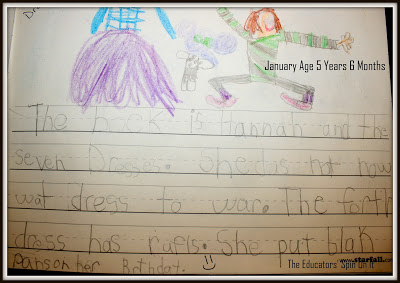 Dr
January Age 5 Years 6 Months
The hock is Hannah and the
seven Dresses. Shedus not now
wat dress to war. The forth
dress has rufls. She put blak
pans on her Birthday.
www.starfall.com
The Educators' Spin On It